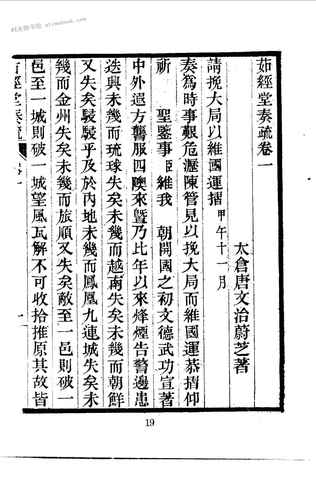 茹經堂奏疏卷一
太倉唐文治蔚芝著
請挽大局以維國運摺 甲午十一月
奏爲時事艱危瀝陳管見以挽大局而維國運恭摺仰
祈 聖鑒事竊維我 朝開國之初文德武功宣著
中外遐方讋服四隩來曁乃比年以來烽煙告警邊患
迭興未幾而琉球失矣未幾而越南失矣未幾而朝鮮
又失矣駸駸乎及於內地未幾而鳳凰九連城失矣未
幾而金州失矣未幾而旅順又失矣敵至一邑則破一
邑至一城則破一城望風瓦解不可收拾推原其故皆
19